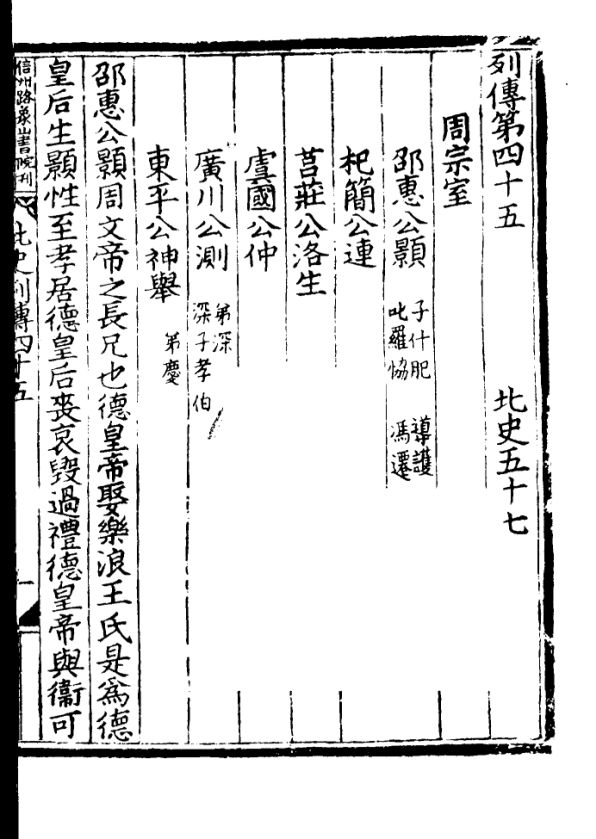 列傳第四十五 北史五十七
周宗室
邵惠公顥 子什肥 導 護 叱羅協 馮遷
杞簡公連
莒莊公洛生
虞國公仲
廣川公測 弟深 深子孝伯
東平公神舉 弟慶
邵惠公顥周文帝之長兄也德皇帝娶樂浪王氏是爲德
皇后生顥性至孝居德皇后喪哀毀過禮德皇帝與衞可
信州路象山書院刊 北史列傳四十五 一